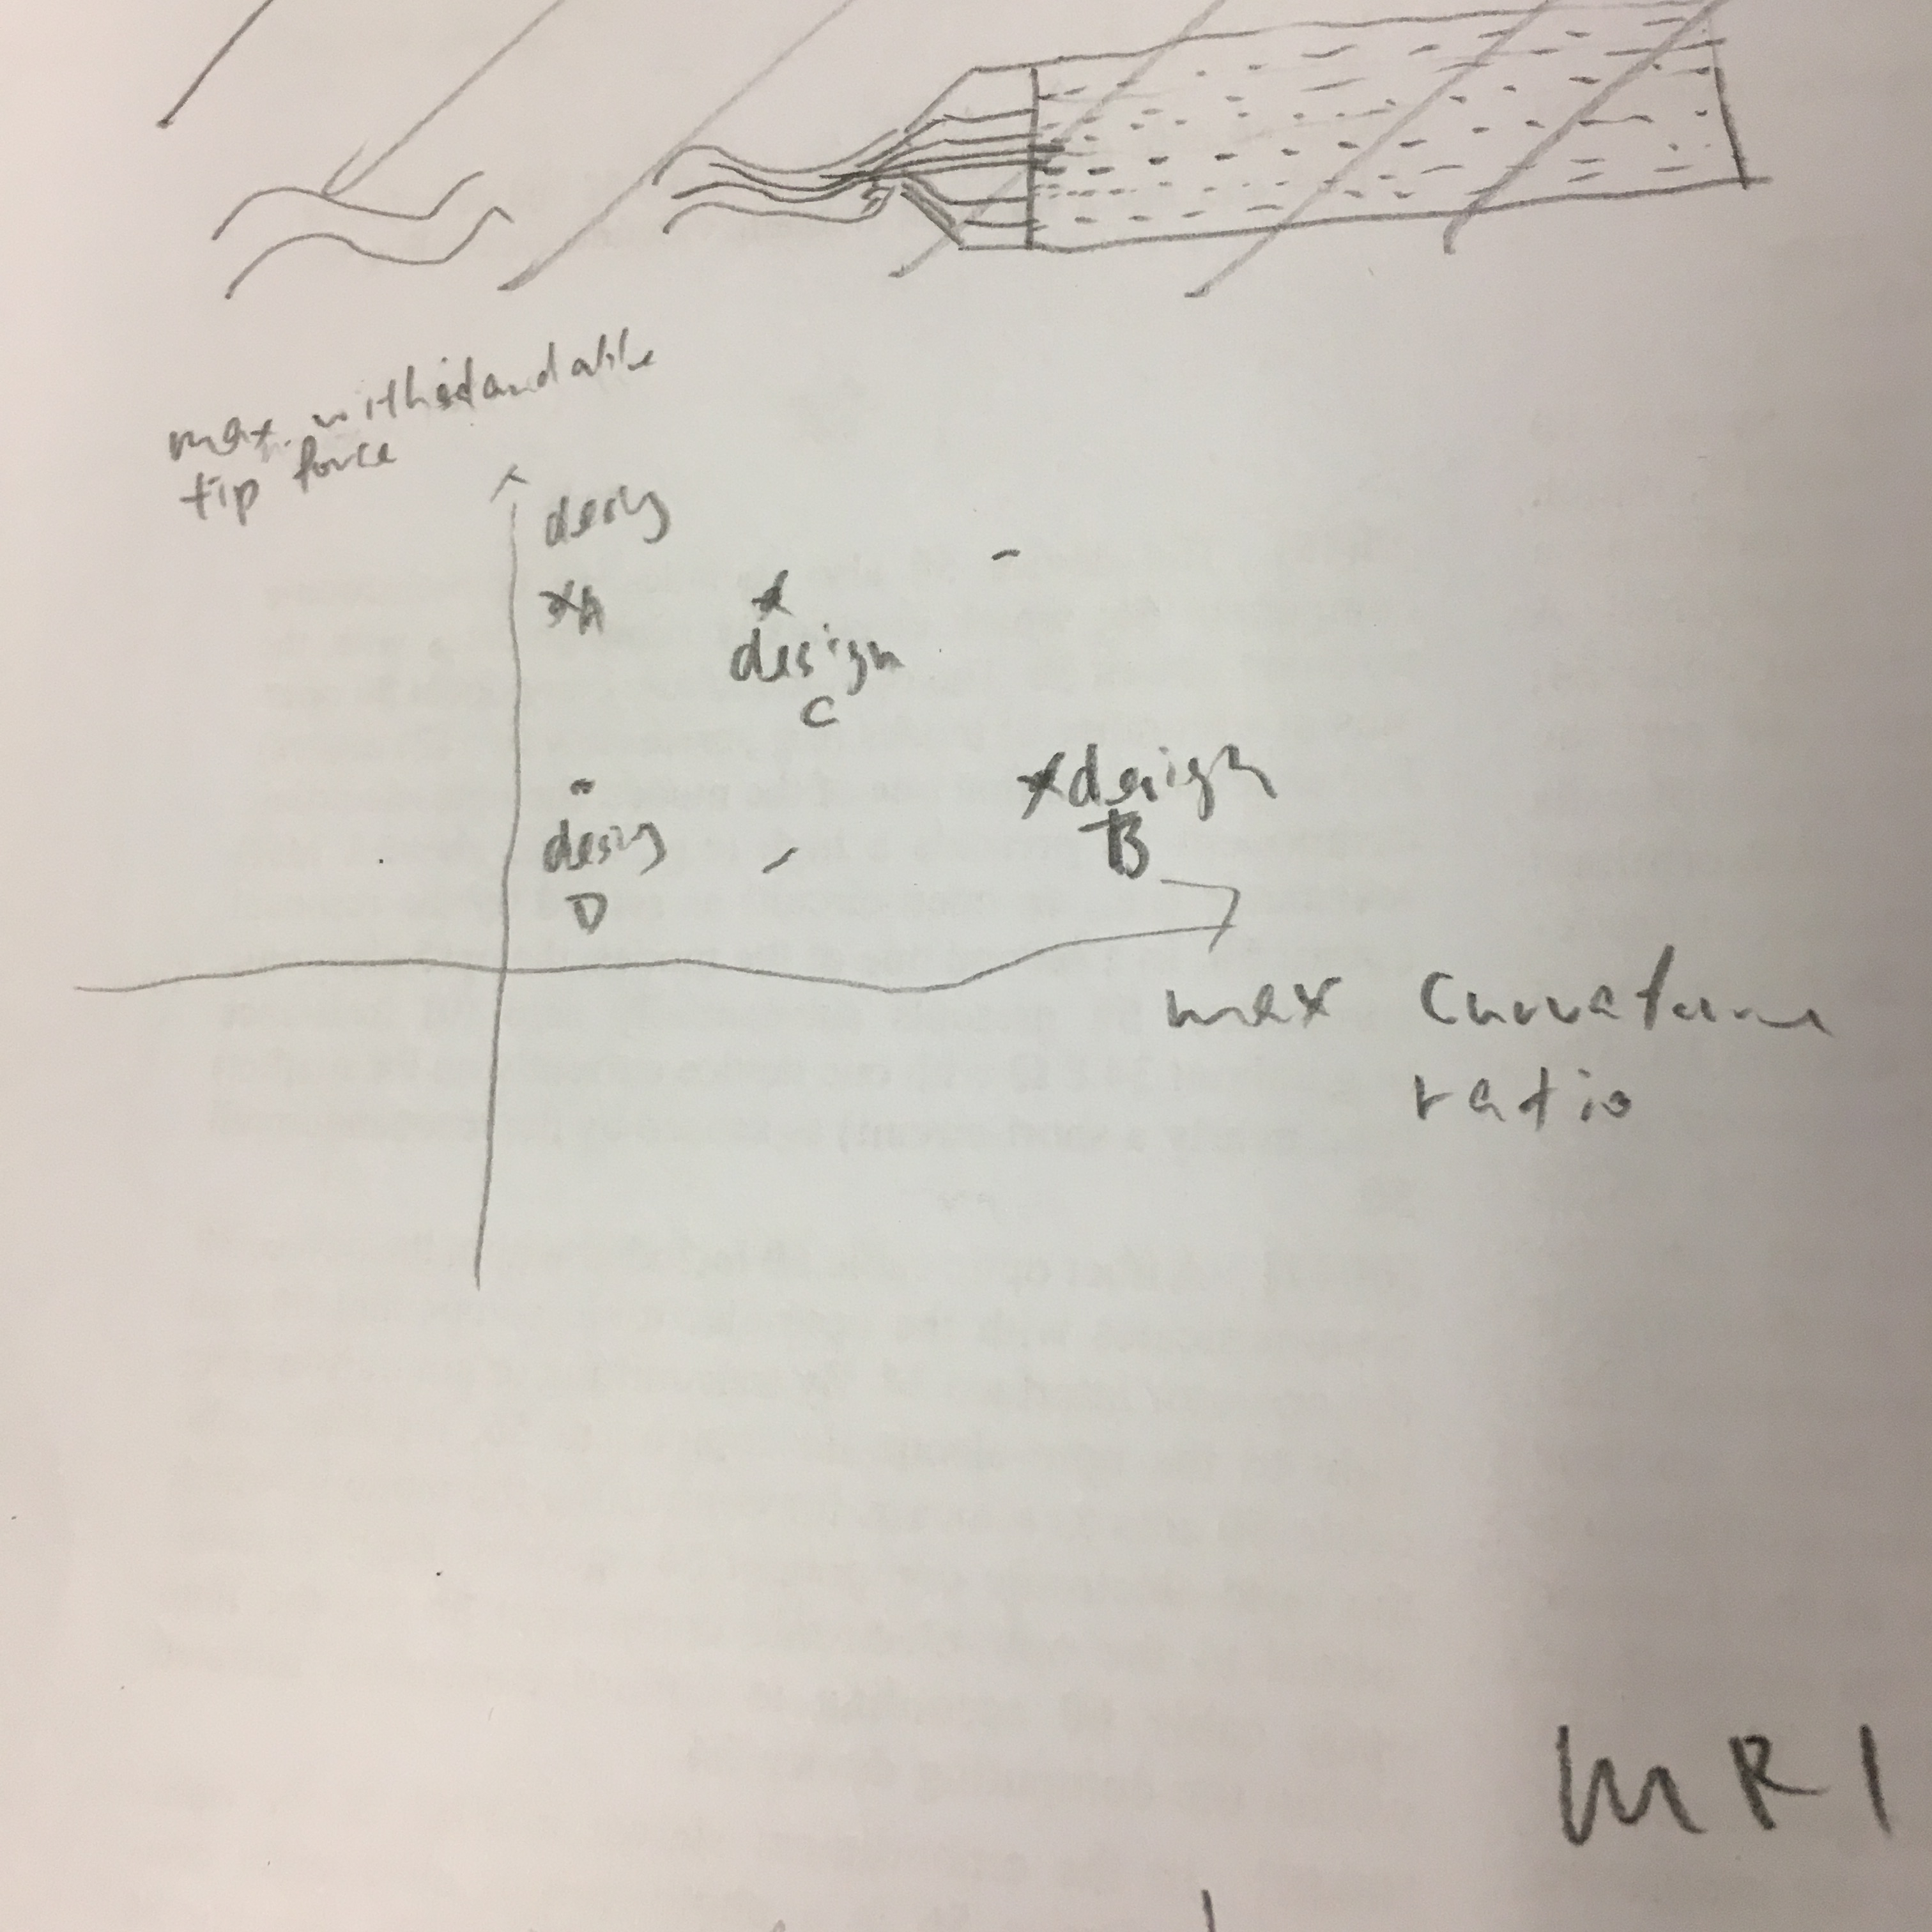 max. withstandable
tip force
desig
xA
x
design
C
desig
D
x design
B
max Curvature
ratio
MRI